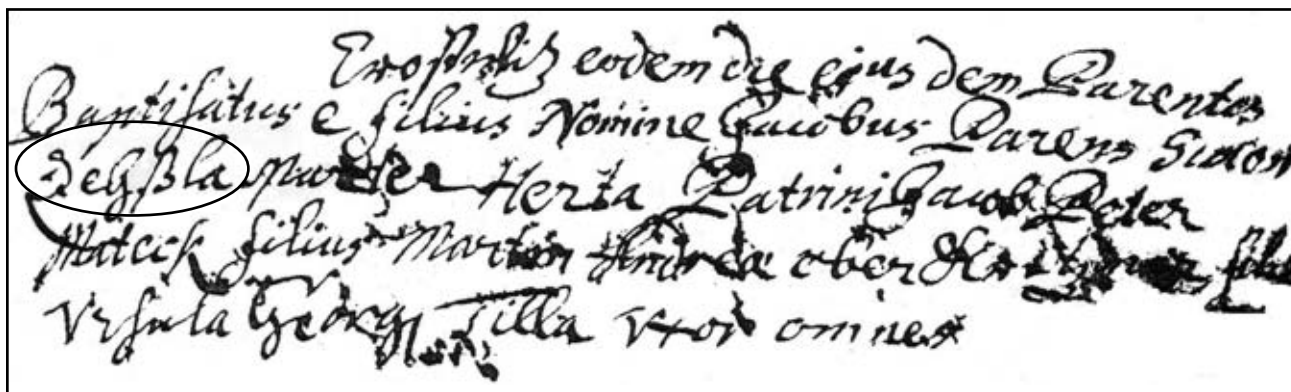 eodem die ejus dem Parentes
Baptisatus e filius Nomine Jacobus Parens Simon
Deyßla Mater Herta Patrini Jacob Peter
Mateck filius Martin Andrea ober
Ursula Georg Tilla Uxor omnes